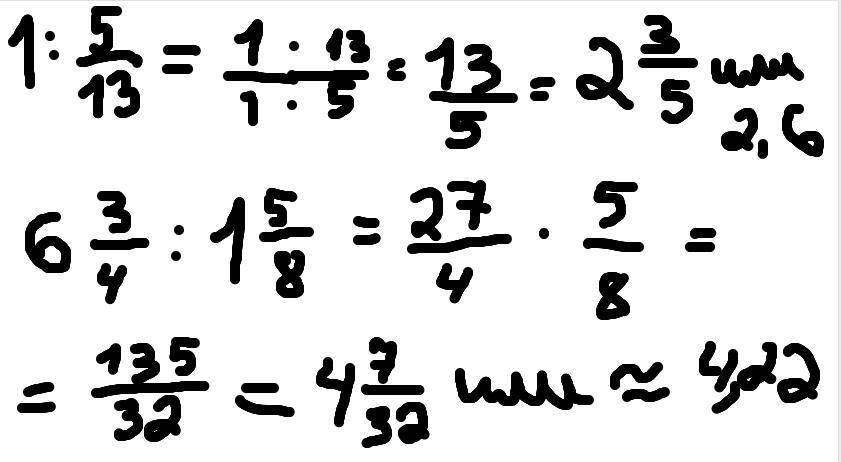 1 : 5/13 = 1 · 13 / 1 · 5 = 13/5 = 2 3/5 или 2,6
6 3/4 : 1 5/8 = 27/4 · 5/8 =
= 135/32 = 4 7/32 или ≈ 4,22